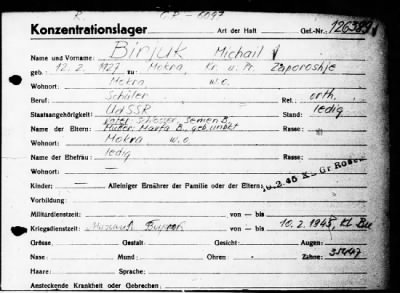 Konzentrationslager Art der Haft Gef.-Nr. 126389
Name und Vorname: Birjuk Michail
geb.: 12. 2. 1927 zu Mokra Kr. u. Pr. Zaporoshje
Wohnort: Mokra w.o.
Beruf: Schüler Rel. orth.
Staatsangehörigkeit: UdSSR Stand: ledig
Name der Eltern: Vater: Schlosser, Semen B., Mutter: Marfa B., geb. unbek. Rasse:
Wohnort: Mokra w.o.
Name der Ehefrau: ledig Rasse:
Wohnort: —
Kinder: — Alleiniger Ernährer der Familie oder der Eltern:
10.2.45 KL Gr Rosen
Vorbildung:
Militärdienstzeit: von — bis
Kriegsdienstzeit: von — bis 10. 2. 1945, KL Bu
Grösse: Gestalt: Gesicht: Augen:
Nase: Mund: Ohren: Zähne:
Haare: Sprache:
Ansteckende Krankheit oder Gebrechen: